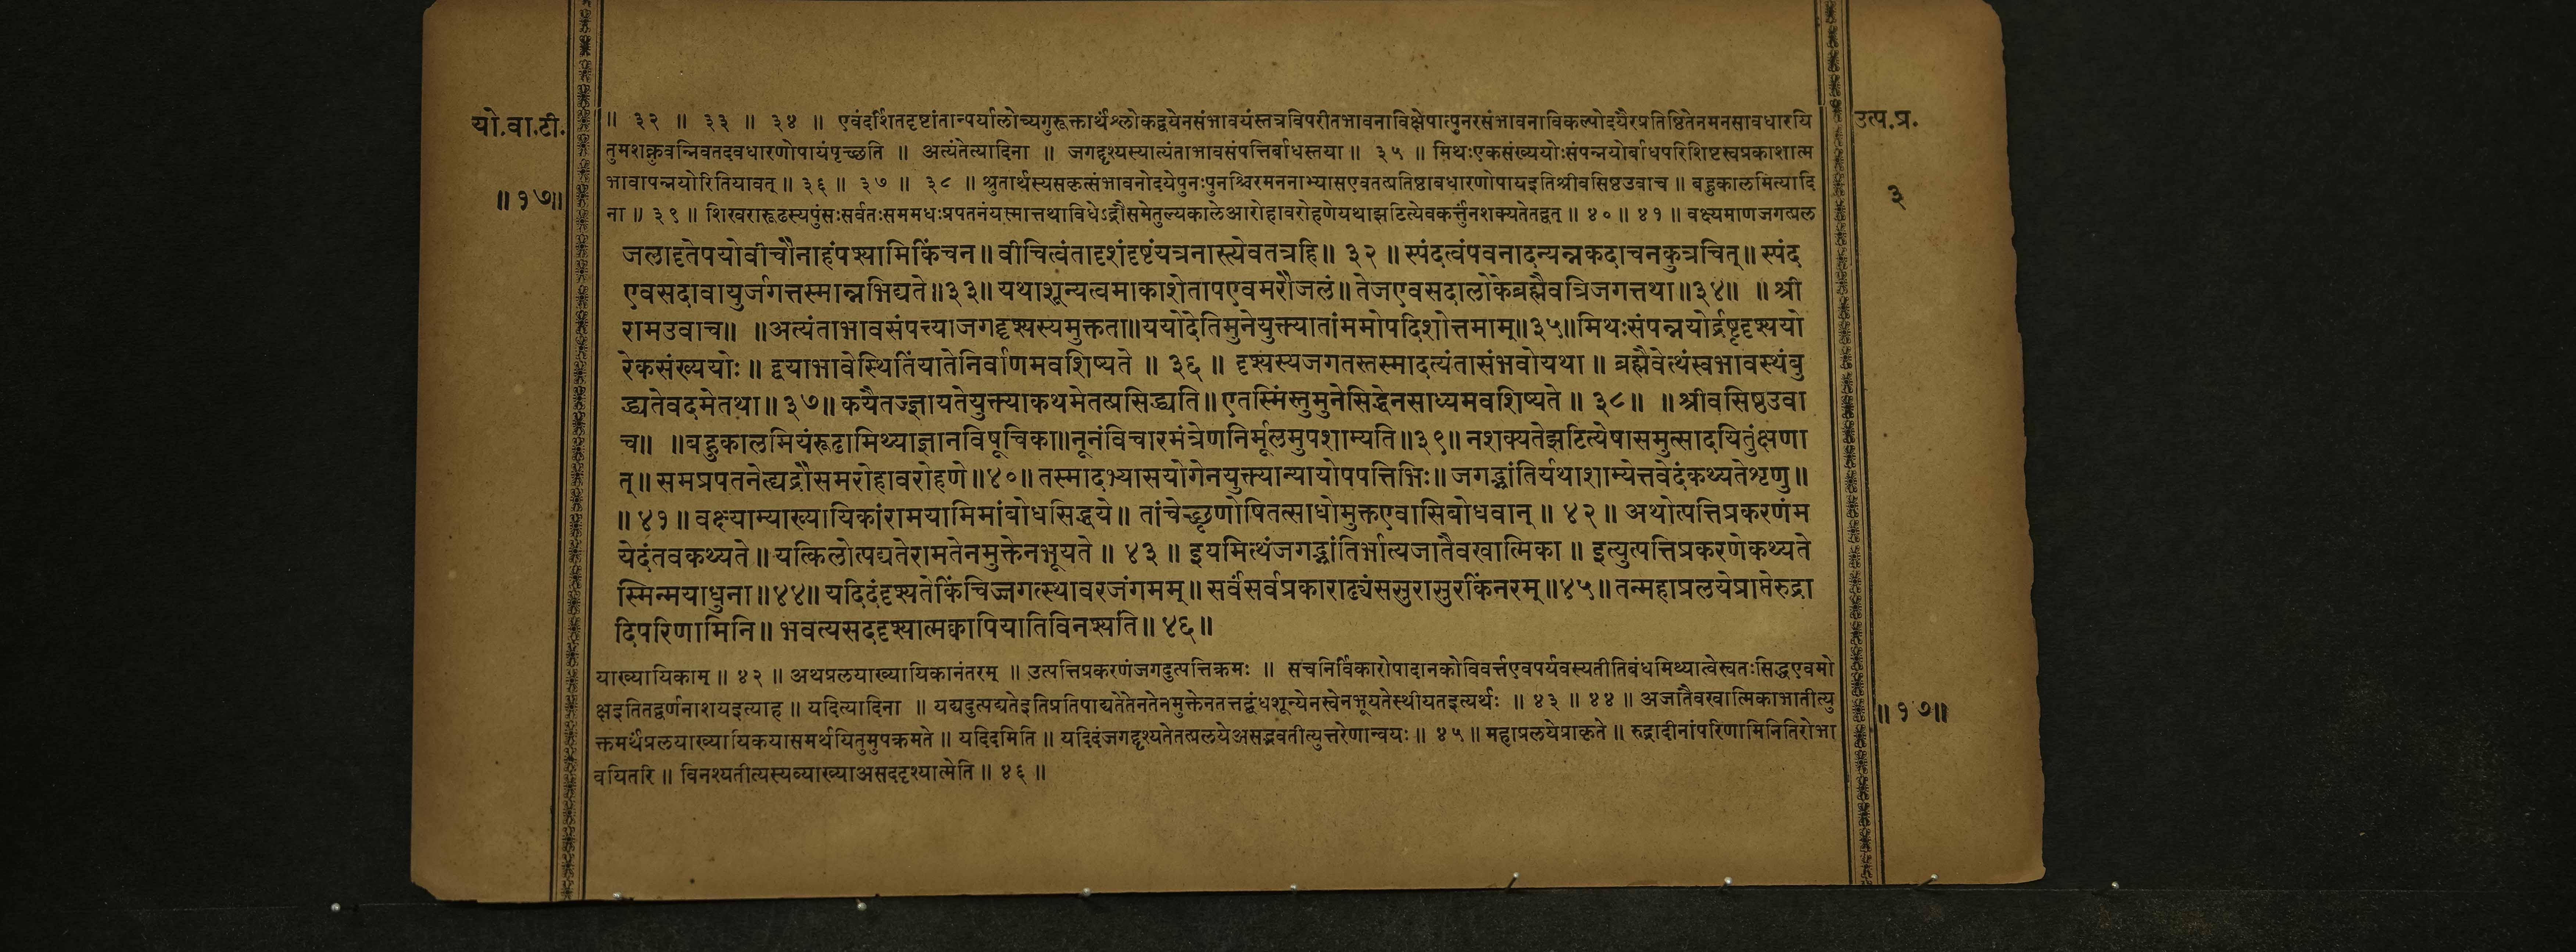 यो.वा.टी.
॥ १७॥
उत्प.प्र.
३
॥ ३२ ॥ ३३ ॥ ३४ ॥ एवंदर्शितदृष्टांतान्पर्यालोच्यगुरूक्तार्थश्लोकद्वयेनसंभावयंस्तत्रविपरीतभावनाविक्षेपात्पुनरसंभावनाविकल्पोदयैरप्रतिष्ठितेनमनसावधारयि
तुमशक्नुवन्निवतदवधारणोपायंपृच्छति ॥ अत्यंतेत्यादिना ॥ जगद्दृश्यस्यात्यंताभावसंपत्तिर्बाधस्तया ॥ ३५ ॥ मिथःएकसंख्ययोःसंपन्नयोर्बाधपरिशिष्टस्वप्रकाशात्म
भावापन्नयोरितियावत् ॥ ३६ ॥ ३७ ॥ ३८ ॥ श्रुतार्थस्यसकृत्संभावनोदयेपुनःपुनश्चिरमननाभ्यासएवतत्प्रतिष्ठावधारणोपायइतिश्रीवसिष्ठउवाच ॥ बहुकालमित्यादि
ना ॥ ३९ ॥ शिखरारूढस्यपुंसःसर्वतःसममधःप्रपतनंयस्मात्तथाविधेऽद्रौसमेतुल्यकालेआरोहावरोहणेयथाझटित्येवकर्त्तुंनशक्यतेतद्वत् ॥ ४० ॥ ४१ ॥ वक्ष्यमाणजगत्प्रल
जलादृतेपयोवीचौनाहंपश्यामिकिंचन ॥ वीचित्वंतादृशंदृष्टंयत्रनास्त्येवतत्रहि ॥ ३२ ॥ स्पंदत्वंपवनादन्यन्नकदाचनकुत्रचित् ॥ स्पंद
एवसदावायुर्जगत्तस्मान्नभिद्यते ॥३३॥ यथाशून्यत्वमाकाशेतापएवमरौजलं ॥ तेजएवसदालोकेब्रह्मैवत्रिजगत्तथा ॥३४॥ ॥ श्री
रामउवाच ॥ ॥अत्यंताभावसंपत्त्याजगद्दृश्यस्यमुक्तता॥ययोदेतिमुनेयुक्त्यातांममोपदिशोत्तमाम्॥३५॥मिथःसंपन्नयोर्द्रष्टृदृश्ययो
रेकसंख्ययोः ॥ द्वयाभावेस्थितिंयातेनिर्वाणमवशिष्यते ॥ ३६ ॥ दृश्यस्यजगतस्तस्मादत्यंतासंभवोयथा ॥ ब्रह्मैवेत्थंस्वभावस्थंबु
द्ध्यतेवदमेतथा ॥ ३७॥ कयैतज्ज्ञायतेयुक्त्याकथमेतत्प्रसिद्ध्यति ॥ एतस्मिंस्तुमुनेसिद्धेनसाध्यमवशिष्यते ॥ ३८॥ ॥ श्रीवसिष्ठउवा
च॥ ॥बहुकालमियंरूढामिथ्याज्ञानविषूचिका॥नूनंविचारमंत्रेणनिर्मूलमुपशाम्यति॥३९॥ नशक्यतेझटित्येषासमुत्सादयितुंक्षणा
त् ॥ समप्रपतनेत्द्यद्रौसमरोहावरोहणे ॥४०॥ तस्मादभ्यासयोगेनयुक्त्यान्यायोपपत्तिभिः ॥ जगद्भ्रांतिर्यथाशाम्येत्तवेदंकथ्यतेशृणु ॥
॥ ४१ ॥ वक्ष्याम्याख्यायिकांरामयामिमांबोधसिद्धये ॥ तांचेच्छृणोषितत्साधोमुक्तएवासिबोधवान् ॥ ४२ ॥ अथोत्पत्तिप्रकरणंम
येदंतवकथ्यते ॥ यत्किलोत्पद्यतेरामतेनमुक्तेनभूयते ॥ ४३ ॥ इयमित्थंजगद्भ्रांतिर्भात्यजातैवखात्मिका ॥ इत्युत्पत्तिप्रकरणेकथ्यते
स्मिन्मयाधुना ॥४४॥ यदिदंदृश्यतेकिंचिज्जगत्स्थावरजंगमम् ॥ सर्वंसर्वप्रकाराढ्यंससुरासुरकिंनरम् ॥४५॥ तन्महाप्रलयेप्राप्तेरुद्रा
दिपरिणामिनि ॥ भवत्यसददृश्यात्मक्वापियातिविनश्यति ॥ ४६ ॥
याख्यायिकाम् ॥ ४२ ॥ अथप्रलयाख्यायिकानंतरम् ॥ उत्पत्तिप्रकरणंजगदुत्पत्तिक्रमः ॥ सचनिर्विकारोपादानकोविवर्त्तएवपर्यवस्यतीतिबंधमिथ्यात्वेस्वतःसिद्धएवमो
क्षइतितद्वर्णनाशयइत्याह ॥ यदित्यादिना ॥ यद्यदुत्पद्यतेइतिप्रतिपाद्यतेतेनतेनमुक्तेनतत्तद्बंधशून्येनस्वेनभूयतेस्थीयतइत्यर्थः ॥ ४३ ॥ ४४ ॥ अजातैवखात्मिकाभातीत्यु
क्तमर्थंप्रलयाख्यायिकयासमर्थयितुमुपक्रमते ॥ यदिदमिति ॥ यदिदंजगद्दृश्यतेतत्प्रलयेअसद्भवतीत्युत्तरेणान्वयः ॥ ४५ ॥ महाप्रलयेप्राकृते ॥ रुद्रादीनांपरिणामिनितिरोभा
वयितरि ॥ विनश्यतीत्यस्यव्याख्याअसददृश्यात्मेति ॥ ४६ ॥
॥ १७॥